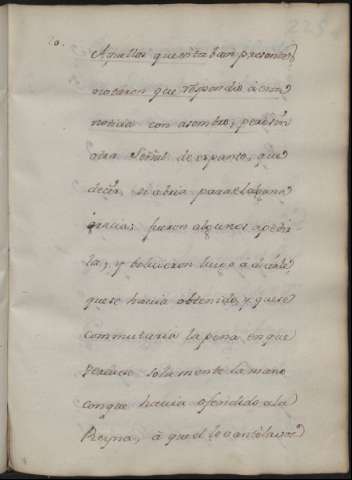 Aquellos que estaban presentes
notaron que respondió á esta
noticia con asombro, pero sin
otra Señal de espanto, que
decir, si abria para el alguna
gracia; fueron algunos a pedir
la, y bolvieron luego á decirle
que se havia obtenido, y que se
commutaria la pena en que
perdiese solamente la mano
con que havia ofendido a la
Reyna, á que el levantó la voz